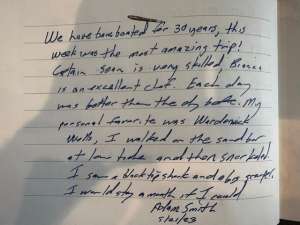 We have bareboated for 30 years, this
week was the most amazing trip!
Captain Sean is very skilled, Bianca
is an excellent chef. Each day
was better than the day before. My
personal favorite was Warderwick
Wells, I walked on the sandbar
at low tide and then snorkeled.
I saw a black tip shark and a big grouper.
I would stay a month if I could.
Adam Smith
5/21/23